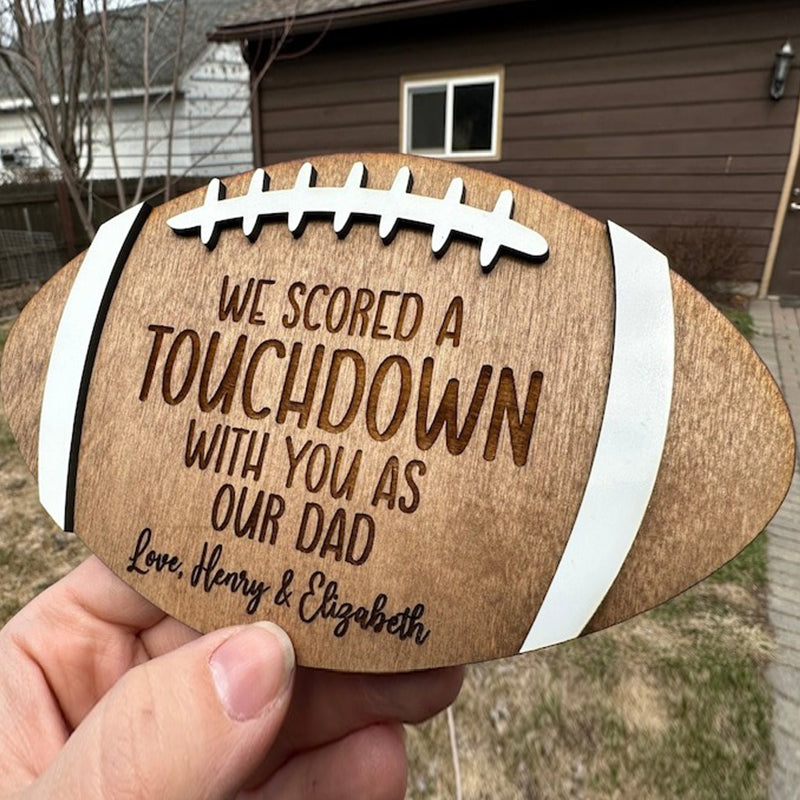 WE SCORED A
TOUCHDOWN
WITH YOU AS
OUR DAD
Love, Henry & Elizabeth